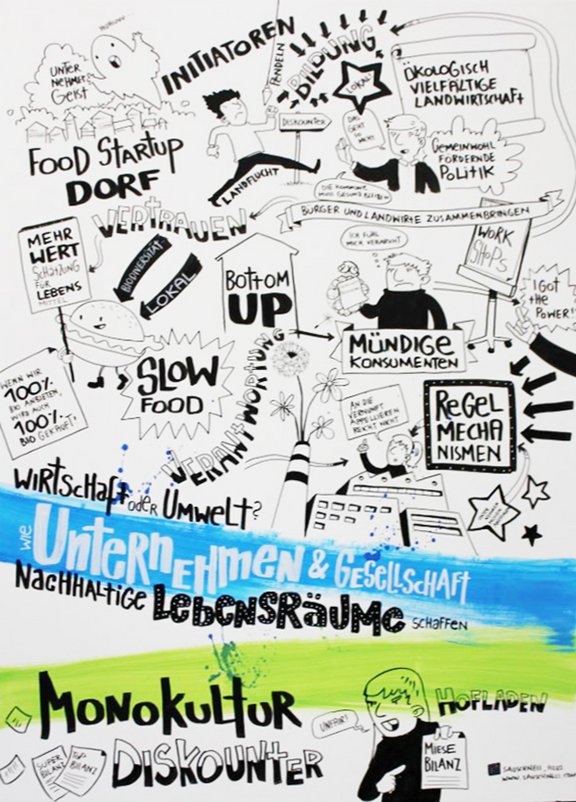 UNTER
NEHMER
GEIST
INITIATOREN
PENDELN
BILDUNG
LOKAL
ÖKOLOGISCH
VIELFÄLTIGE
LANDWIRTSCHAFT
DISKOUNTER
DAS
GEHT
SO
NICHT
FOOD STARTUP
DORF
LANDFLUCHT
GEMEINWOHL
FÖRDERNDE
POLITIK
DIE KOMMUNE
MUSS GESUND BLEIBEN
VERTRAUEN
BÜRGER UND LANDWIRTE ZUSAMMENBRINGEN
MEHR
WERT
SCHÄTZUNG
FÜR
LEBENS
MITTEL
BIODIVERSITÄT
LOKAL
BOTTOM
UP
ICH FÜHL
MICH VERARSCHT
WORK
SHOPS
I GOT
THE
POWER!
MÜNDIGE
KONSUMENTEN
WENN WIR
100%
BIO ANBIETEN,
WIRD AUCH
100%
BIO GEKAUFT!
SLOW
FOOD
VERANTWORTUNG
AN DIE
VERNUNFT
APPELLIEREN
REICHT NICHT
REGEL
MECHA
NISMEN
WIRTSCHAFT ODER UMWELT?
WIE UNTERNEHMEN & GESELLSCHAFT
NACHHALTIGE LEBENSRÄUME SCHAFFEN
MONOKULTUR
HOFLADEN
UNFAIR!
DISKOUNTER
SUPER
BILANZ
TOP
BILANZ
MIESE
BILANZ